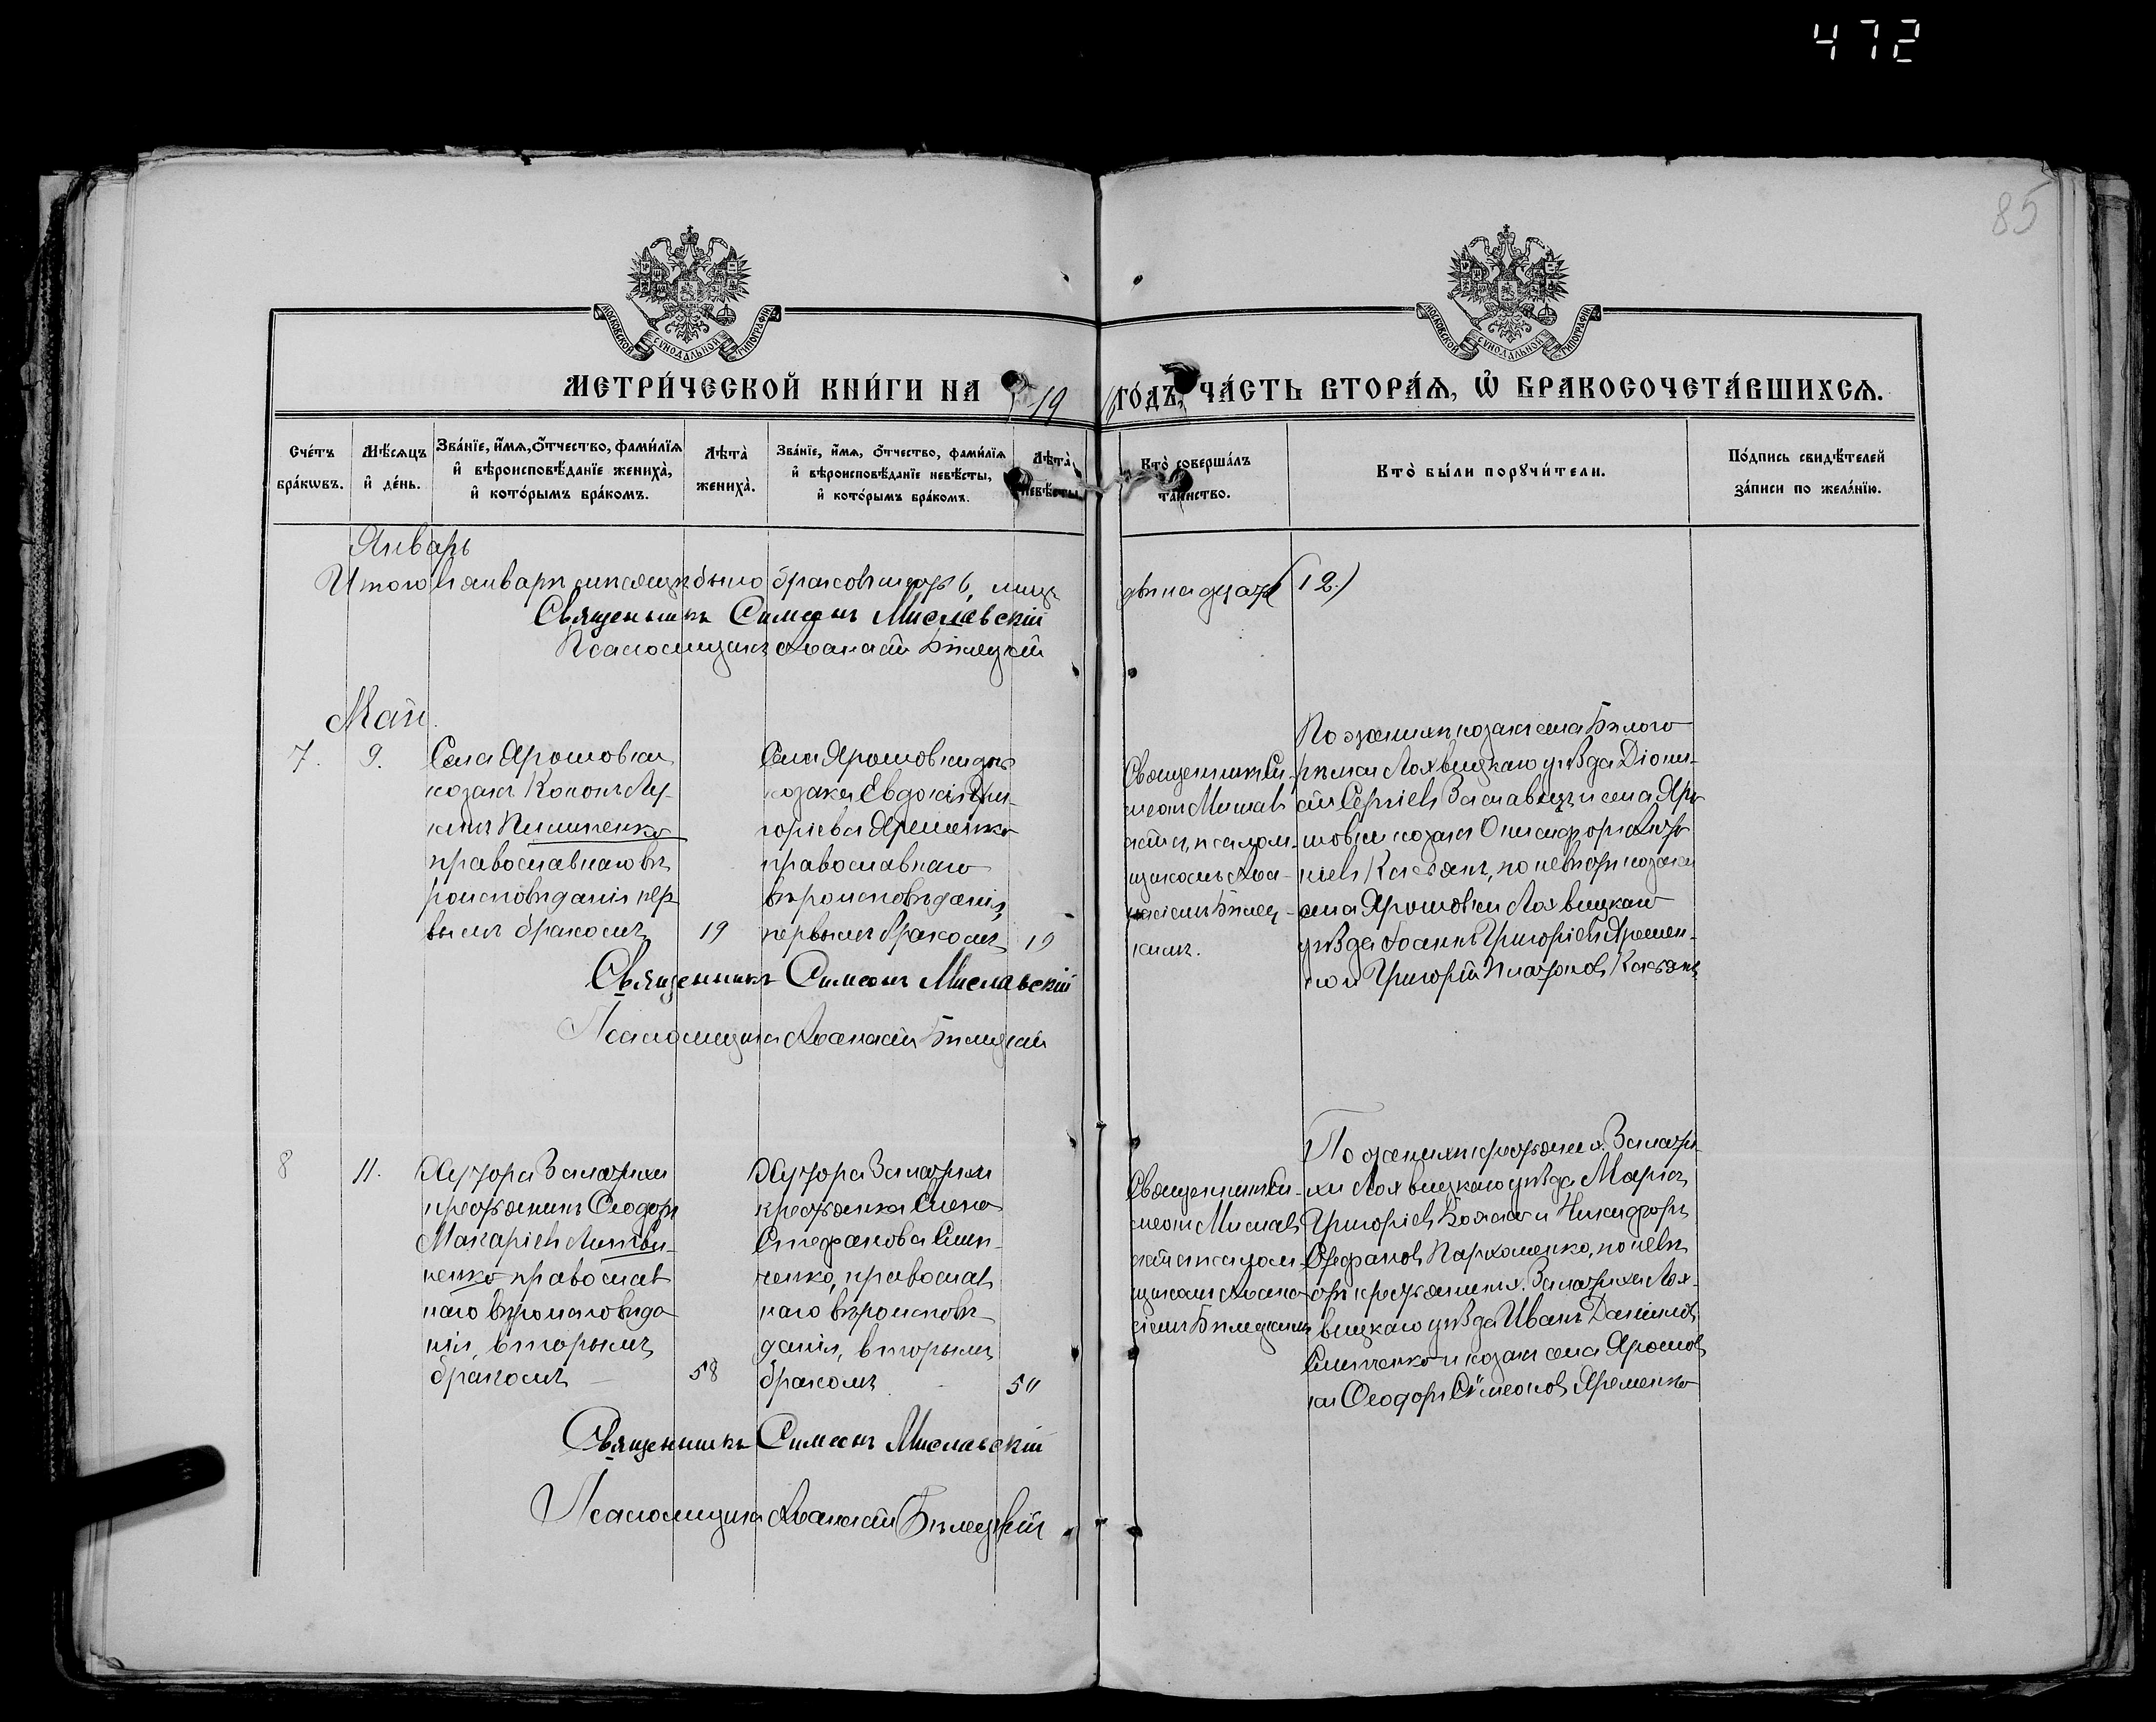 472
85
МОСКОВСКОЙ СѴНОДАЛЬНОЙ ТИПОГРАФІИ
МОСКОВСКОЙ СѴНОДАЛЬНОЙ ТИПОГРАФІИ
МЕТРИ́ЧЕСКОЙ КНИ́ГИ НА 19 ГО́ДЪ, ЧА́СТЬ ВТОРА́Ѧ, Ѽ БРАКОСОЧЕТА́ВШИХСѦ.
Сче́тъ бра́кѡвъ.
Мѣ́сѧцъ и҆ де́нь.
Зва́нїе, и҆́мѧ, ѻ҆́тчество, фами́лїѧ и҆ вѣроисповѣ́данїе жениха̀, и҆ кото́рымъ бра́комъ.
Лѣта̀ жениха̀.
Зва́нїе, и҆́мѧ, ѻ҆́тчество, фами́лїѧ и҆ вѣроисповѣ́данїе невѣ́сты, и҆ кото́рымъ бра́комъ.
Лѣта̀ невѣ́сты
Кто̀ соверша́лъ таинство.
Кто̀ бы́ли порꙋчи́тели.
По́дпись свидѣ́телей за́писи по жела́нїю.
Январь
Итого въ январѣ мѣсяцѣ было браковъ шесть 6, лицъ двѣнадцать (12.)
Священникъ Симеонъ Миславскій
Псаломщикъ Аѳанасій Бѣлецкій
Май.
7. 9.
Села Ярошовки
козакъ Кононъ Лу-
кинъ Пилипенко
православнаго вѣ
роисповѣданія пер
вымъ бракомъ
19
Села Ярошовки дочь
козака Евдокія Гри-
горіева Яременко
православнаго
вѣроисповѣданія,
первымъ бракомъ
19
Священникъ Си-
меонъ Мислав
скій съ псалом-
щикомъ Аѳа-
насіемъ Бѣлец-
кимъ.
По женихѣ козакъ села Бѣлого
рѣлки Лохвицкаго уѣзда Діони-
сій Сергіевъ Заславецъ и села Яро
шовки козакъ Онисифоръ
по невѣстѣ козаки
села Ярошовки Лохвицкаго
уѣзда Іоаннъ Григоріевъ Яремен-
ко и Григорій Платоновъ
Священникъ Симеонъ Миславскій
Псаломщикъ Аѳанасій Бѣлецкій
8 11.
Хутора Залатихи
крестьянинъ Ѳеодоръ
Макаріевъ Литви-
ненко православ
наго вѣроисповѣда
нія, вторымъ
бракомъ
58
Хутора Залатихи
крестьянка Елена
Стефанова Слип-
ченко, православ
наго вѣроисповѣ
данія, вторымъ
бракомъ
50
Священникъ Си-
меонъ Миславъ
скій съ псалом-
щикомъ Аѳана
сіемъ Бѣлецкимъ
По женихѣ крестьяне х. Залати-
хи Лохвицкаго уѣзда Маркъ
Григоріевъ и Никифоръ
Стефановъ Пархоменко, по невѣ
стѣ крестьянинъ х. Залатихи Лох-
вицкаго уѣзда Иванъ Даниловъ
Слипченко и козакъ села Ярошов
ки Ѳеодоръ Симеоновъ Яременко
Священникъ Симеонъ Миславскій
Псаломщикъ Аѳанасій Бѣлецкій